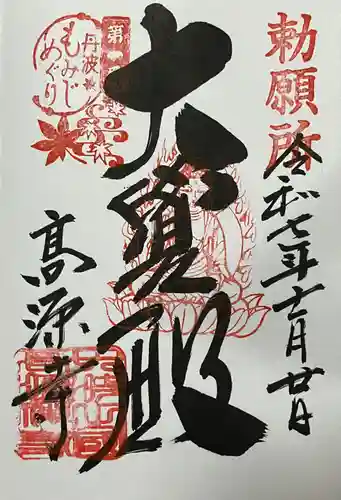 勅願所
令和七年十一月廿日
大寳殿
第
丹波
もみじ
めぐり
高源寺